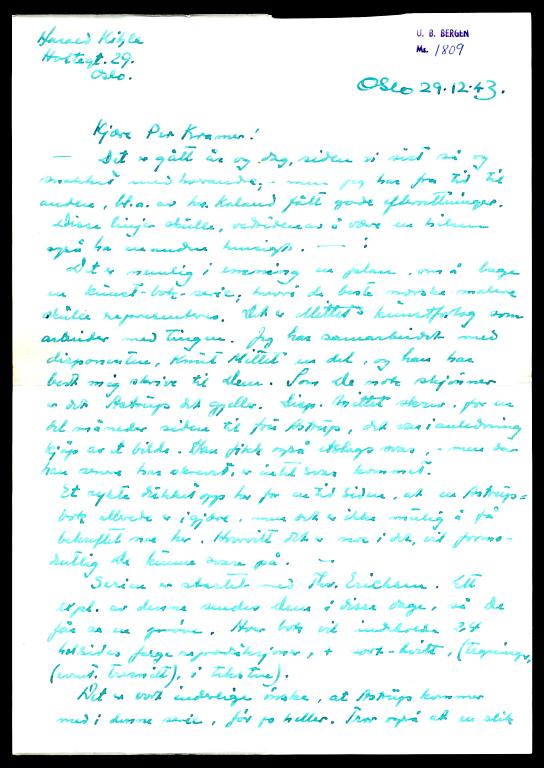 Harald Kihle
Holtegt. 29.
Oslo.
U. B. BERGEN
Ms. 1809
Oslo 29.12.43.
Kjære Per Kramer!
— Det er gått år og dag, siden vi sist så og
snakket med hverandre, - men jeg har fra tid til
annen, bl.a. av hr. Kaland fått gode efterretninger.
Disse linjer skulle, ved siden av å være en hilsen
også ha en annen hensigt. — :
Det er nemlig i emning en plan, om å lage
en kunst-bok-serie, hvori de beste norske malere
skulle representeres. Det er Mittet's kunstforlag som
arbeider med tingen. Jeg har samarbeidet med
disponenten, Knut Mittet en del, og han har
bedt mig skrive til Dem. Som De nok skjønner
er det Astrup det gjelder. Disp. Mittet skrev for en
del måneder siden til fru Astrup, det var i anledning
kjøp av et bilde. Han fikk også avslags svar, - men da
han senere har skrevet, er intet svar kommet.
Et rykte dukket opp her for en tid siden, at en Astrup-
bok allerede er i gjære, men det er ikke mulig å få
bekreftet noe her. Hvorvidt det er noe i det, vil formo-
dentlig De kunne svare på. —
Serien er startet med Thv. Erichsen. Ett
expl. av denne sendes Dem i disse dage, så De
får se en prøve. Hver bok vil inneholde 24
helsides farge reproduksjoner, + sort-hvitt, (tegninger,
(event. tresnitt), i teksten).
Det er vårt inderlige ønske, at Astrup kommer
med i denne serie, før jo heller. Tror også at en slik